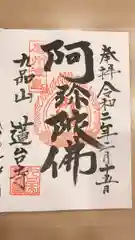 奉拝 令和二年二月十五日
阿弥陀佛
九品山
蓮台寺